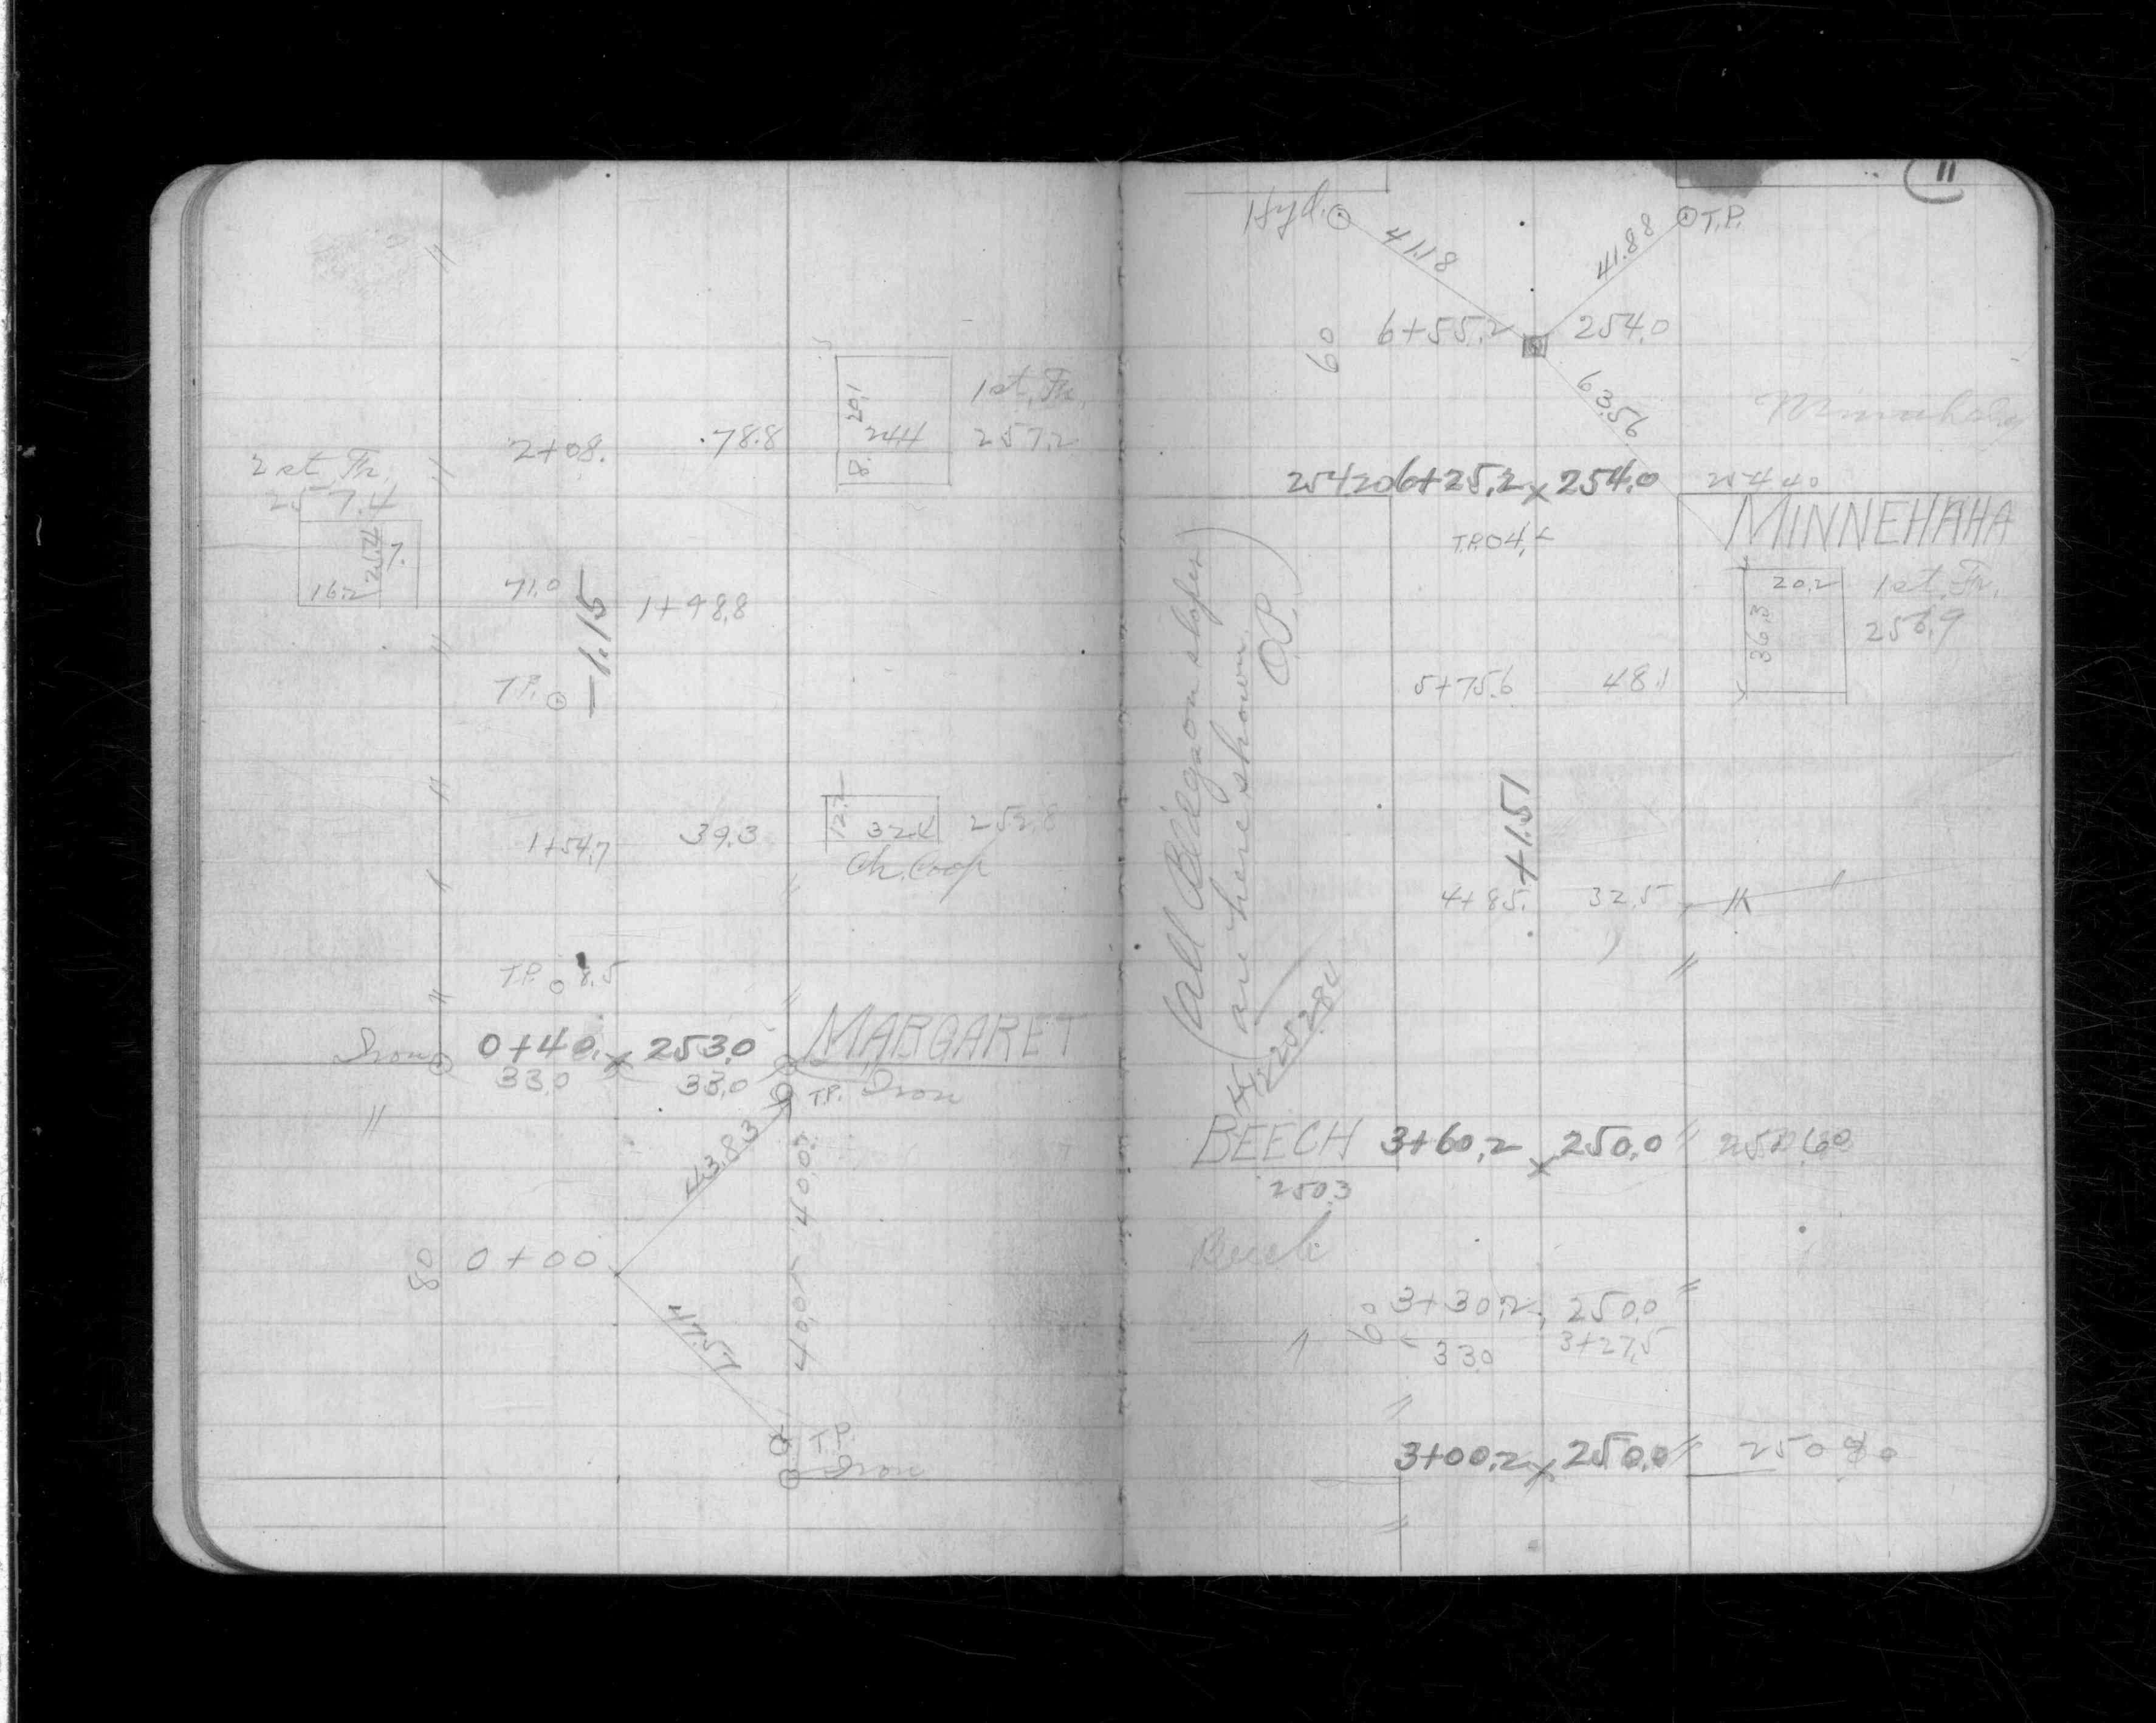 1st. Fr.
2+08. .78.8 20.1 24.4 257.2
8.
2st. Fr.
257.4
25.4 7.
16.2
71.0 1+98.8
-1.15
T.P.
12.2 32.4 252.8
1+54.7 39.3
Ch. Coop
T.P. 8.5
Iron 0+40. x 253.0 MARGARET
33.0 33.0 T.P. Iron
43.83
40.05
80 0+00
40.05
T.P.
Iron
11
Hyd. T.P.
41.18 41.88
60 6+55.2 254.0
63.56
Minnehaha
254206+25.2 x 254.0 25440
T.P.04. MINNEHAHA
20.2 1st. Fr.
36.3 256.9
5+75.6 48.1
(All Bldgs on slopes)
(are here shown.
O.P.
+1.51
4+85. 32.5
252.80
BEECH 3+60.2 x 250.0 250.60
250.3
Beech
60 3+30.2 250.0
33.0 3+27.5
3+00.2 x 250.0 250